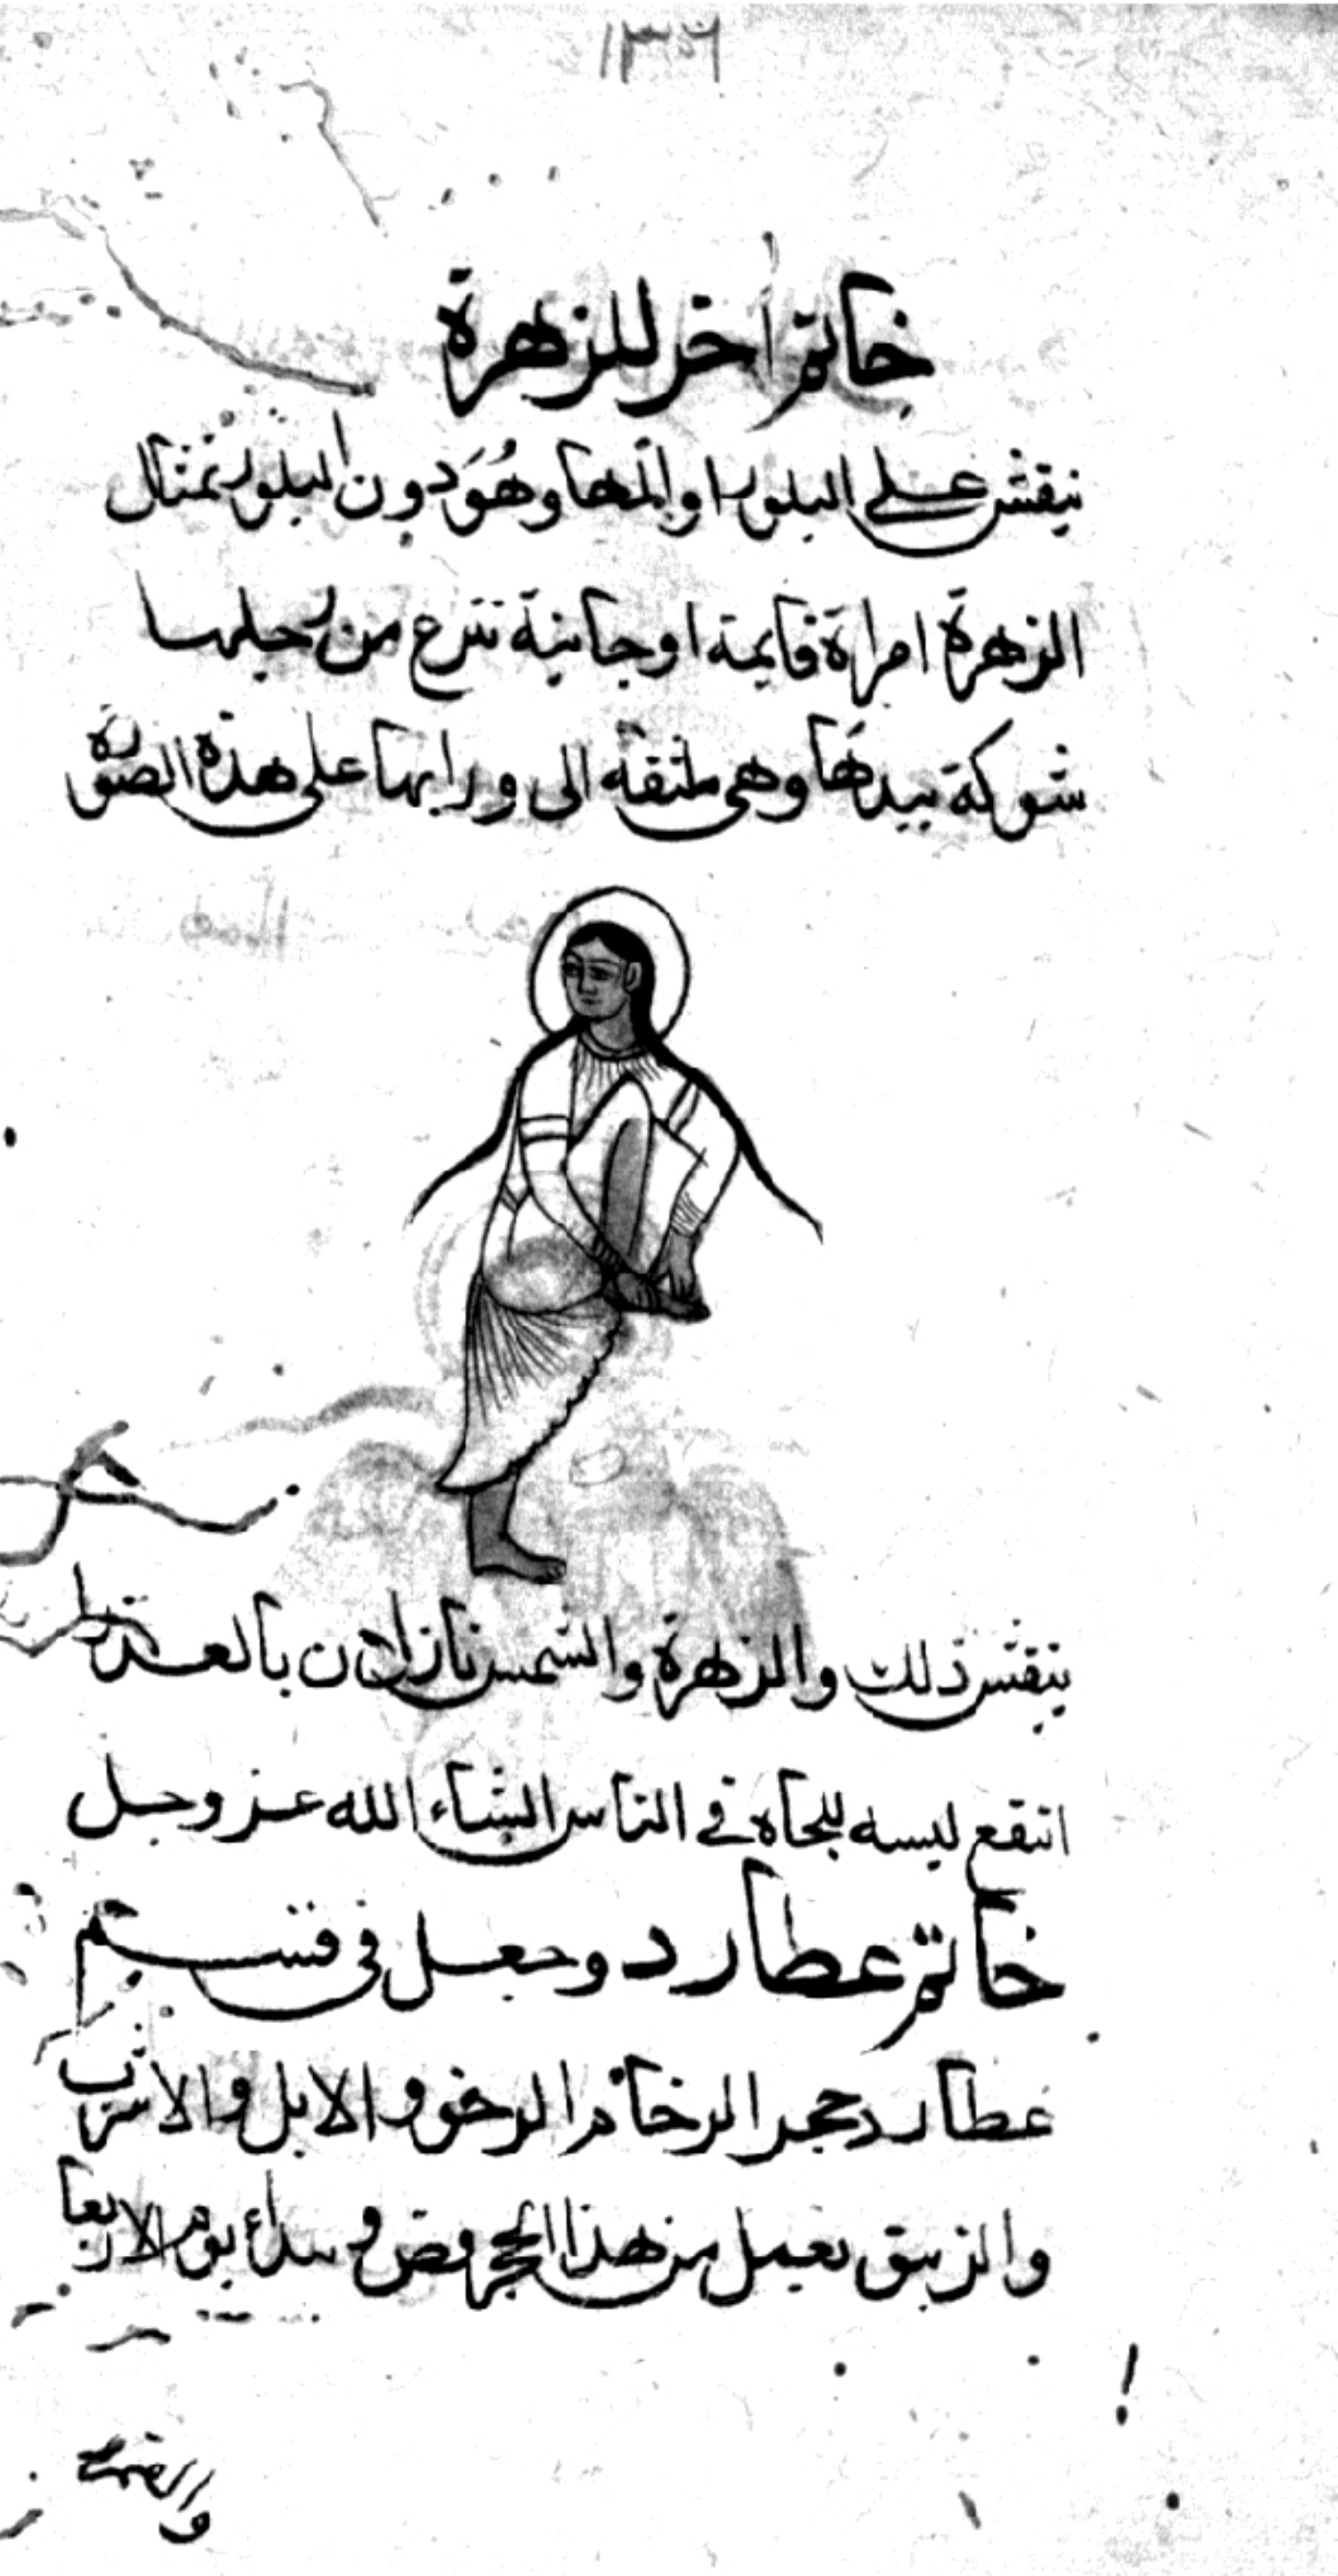 ١٣٦
خاتم اخر للزهرة
ينقش على البلور او المها وهُوَ دون البلور تمثال
الزهرة امراة قايمة او جاثية تنزع من رجلها
شوكة بيدها وهى ملتفتة الى ورايها على هذه الصورة
ينقش ذلك والزهرة والشمس نازلان بالعذرا
انتفع لبسه للجاه في الناس انشاء الله عز وجل
خاتم عطارد وجعل فى قسم
عطارد حجر الرخام الرخو والابل والاسرب
والزيبق يعمل من هذا الحجر فص و يبدأ يوم الاربعا
والقمر